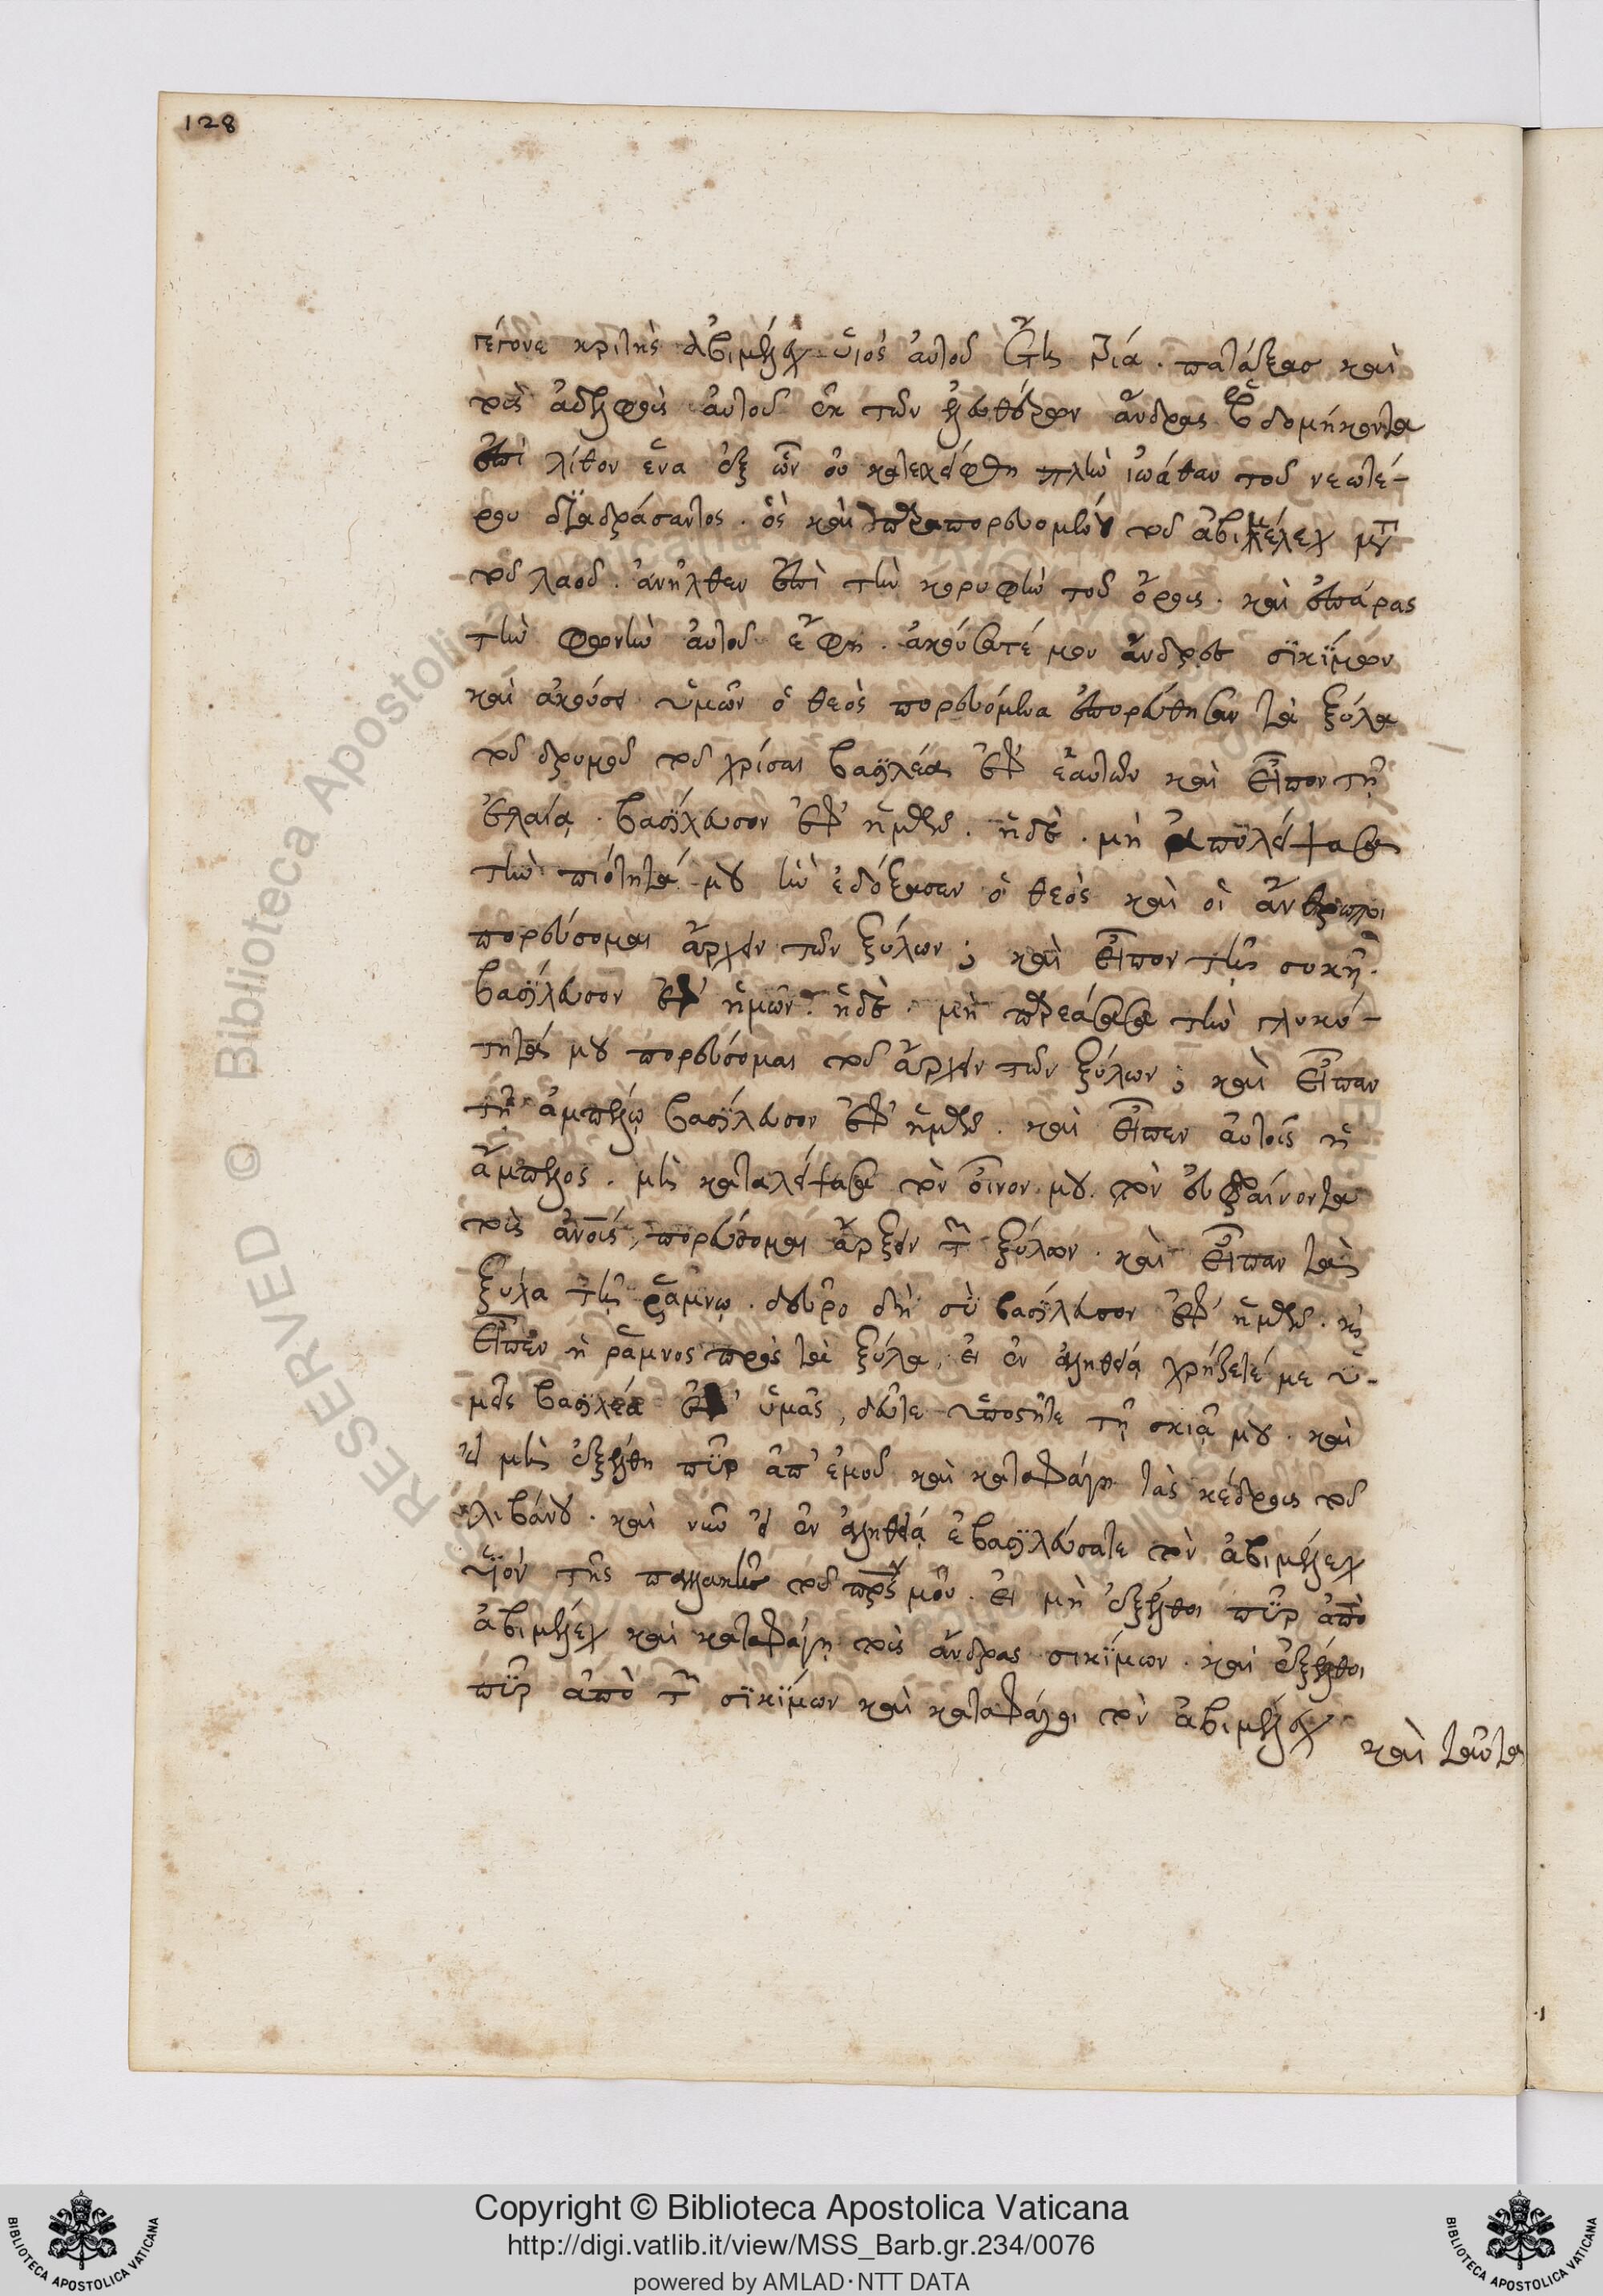 128
γέγονε κριτὴς ἀβιμέλεχ υἱὸς αὐτοῦ ἔτη γιά. πατάξας καὶ
τοὺς ἀδελφοὺς αὐτοῦ ἐκ τῶν ἐλευθέρων ἄνδρας ἑβδομήκοντα
ἐπὶ λίθον ἕνα ἐξ ὧν οὐ κατελείφθη πλὴν ἰωάθαν τοῦ νεωτέ-
ρου διαδράσαντος. ὃς καὶ παραπορευομένου τοῦ ἀβιμέλεχ μετὰ
τοῦ λαοῦ. ἀνῆλθεν ἐπὶ τὴν κορυφὴν τοῦ ὄρους. καὶ ἐπάρας
τὴν φωνὴν αὐτοῦ ἔφη. ἀκούσατέ μου ἄνδρες σϊκΐμων
καὶ ἀκούσει ὑμῶν ὁ θεὸς πορευόμενα ἐπορεύθησαν τὰ ξύλα
τοῦ δρυμοῦ τοῦ χρίσαι βασϊλέα ἐφ' ἑαυτῶν καὶ εἶπον τῇ
ἐλαίᾳ. βασΐλευσον ἐφ' ἡμῶν. ἡ δὲ. μὴ ἀπολείψασα
τὴν πιότητά μου ἣν ἐδόξασεν ὁ θεὸς καὶ οἱ ἄνθρωποι
πορεύσομαι ἄρχειν τῶν ξύλων; καὶ εἶπον τῇ συκῇ.
βασΐλευσον ἐφ' ἡμῶν. ἡ δὲ. μὴ ἐάσασα τὴν γλυκύ-
τητά μου πορεύσομαι τοῦ ἄρχειν τῶν ξύλων; καὶ εἶπαν
τῇ ἀμπέλῳ βασΐλευσον ἐφ' ἡμῶν. καὶ εἶπεν αὐτοῖς ἡ
ἄμπελος. μὴ καταλείψασα τὸν οἶνον μου τὸν εὐφραίνοντα
τοὺς ἀνοις, πορεύσομαι ἄρξειν τῶν ξύλων. καὶ εἶπαν τὰ
ξύλα τῇ ῥάμνῳ. δεῦρο δὴ σὺ βασΐλευσον ἐφ' ἡμῶν. καὶ
εἶπεν ἡ ῥάμνος πρὸς τὰ ξύλα, εἰ ἐν ἀληθείᾳ χρήζετέ με ὑ-
μεῖς βασϊλέα ἐφ' ὑμᾶς, δεῦτε ὑπόστητε τῇ σκιᾷ μου. καὶ
εἰ μὴ ἐξέλθῃ πῦρ ἀπ' ἐμοῦ καὶ καταφάγῃ τὰς κέδρους τοῦ
λιβάνου. καὶ νῦν εἰ ἐν ἀληθείᾳ ἐβασϊλεύσατε τὸν ἀβιμέλεχ
υἱὸν τῆς παλλακῆς τοῦ πρς μου. εἰ μὴ ἐξέλθοι πῦρ ἀπὸ
ἀβιμέλεχ καὶ καταφάγῃ τοὺς ἄνδρας σικΐμων. καὶ ἐξέλθοι
πῦρ ἀπὸ τῶν σϊκΐμων καὶ καταφάγοι τὸν ἀβιμέλεχ
καὶ ταῦτα
RESERVED © Biblioteca Apostolica Vaticana
Copyright © Biblioteca Apostolica Vaticana
http://digi.vatlib.it/view/MSS_Barb.gr.234/0076
powered by AMLAD·NTT DATA
BIBLIOTECA APOSTOLICA VATICANA
BIBLIOTECA APOSTOLICA VATICANA